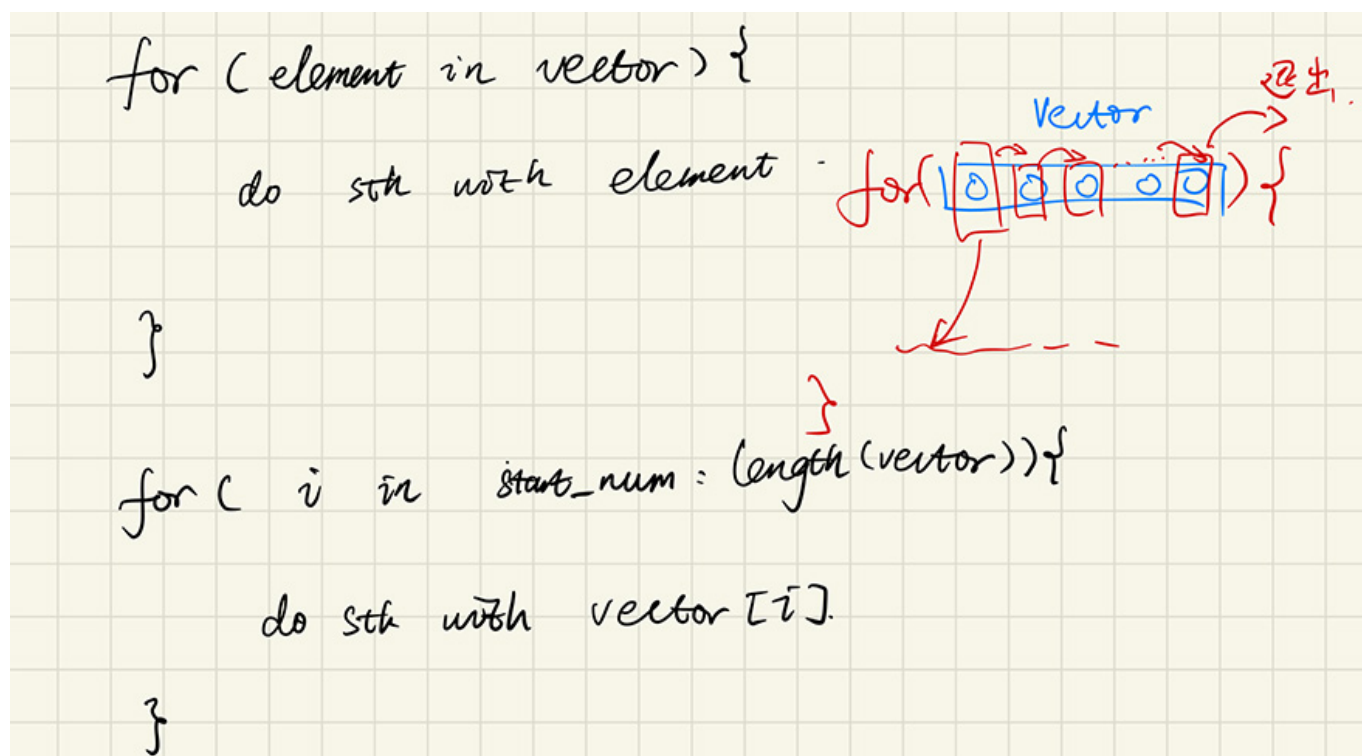 for ( element in vector ) {
do sth with element .
}
Vector
退出.
for( 0 0 0 ..... 0 0 ) {
}
for ( i in start_num : length (vector)) {
do sth with vector [i].
}